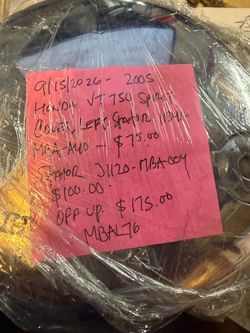 9/15/2026 - 2005
HONDA VT 750 SPIRIT
COVER, LEFT STATOR 11341-
MBA-A40 - $75.00
STATOR 31120-MBA-004
$100.00
OFF UP. $175.00
MBAL76